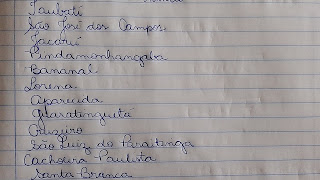 Taubaté
São José dos Campos
Jacareí
Pindamonhangaba
Bananal
Lorena
Aparecida
Guaratinguetá
Cruzeiro
São Luiz do Paraitinga
Cachoeira Paulista
Santa Branca